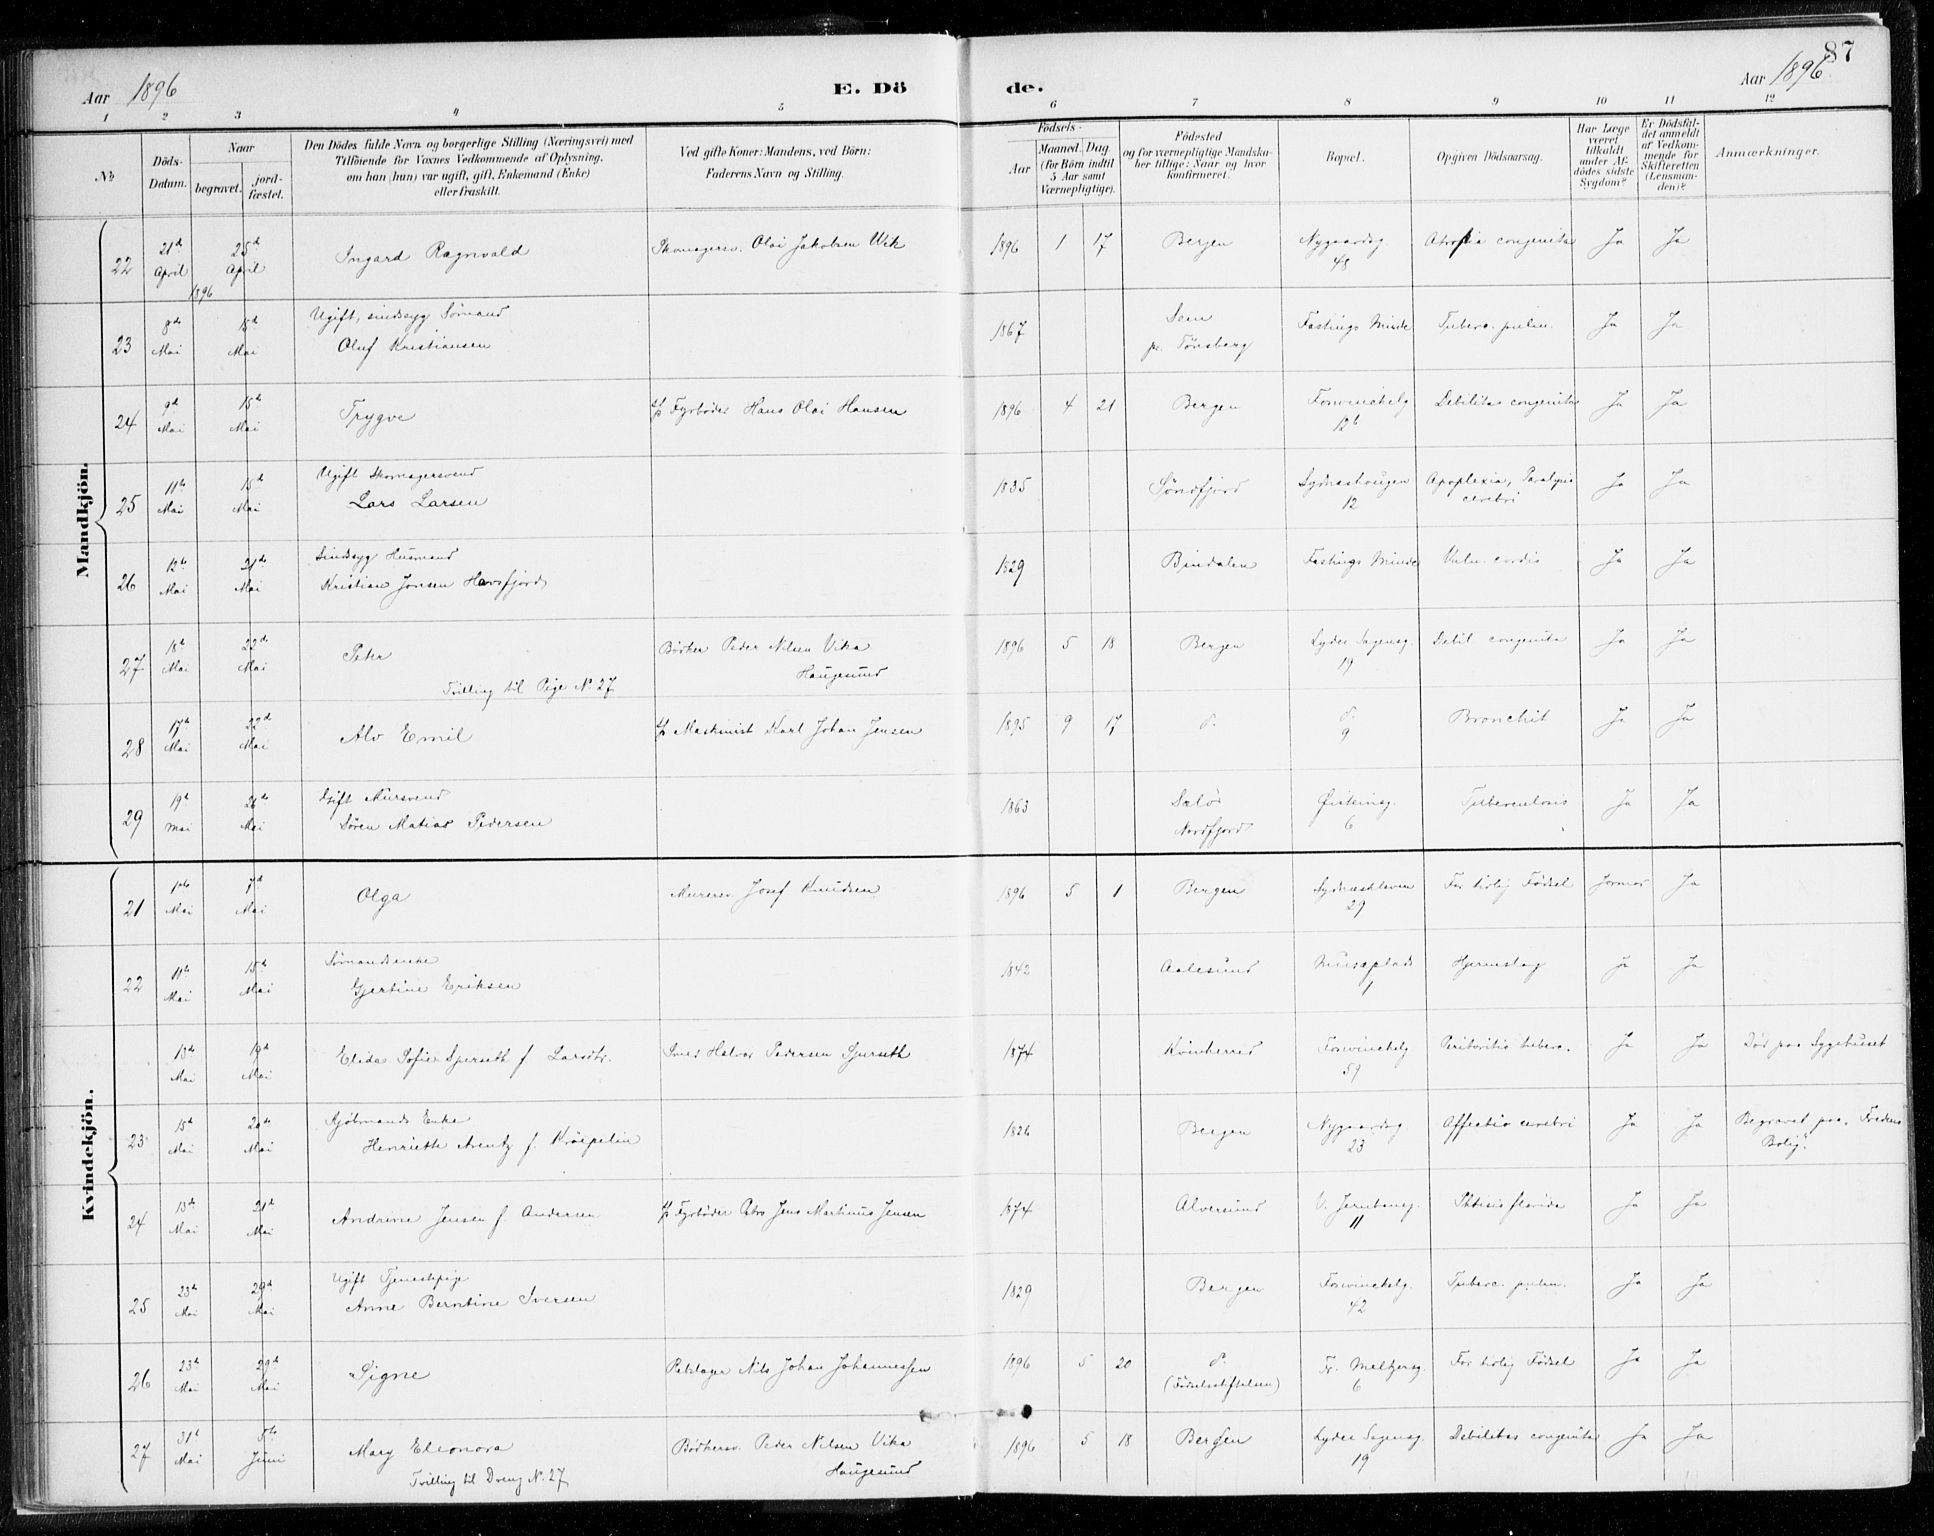 87
Aar 1896
E. Dö
de.
Aar 1896
1 2 3 4 5 6 7 8 9 10 11 12
No
Döds-Datum.
Naar
begravet.
jord-fæstet.
Den Dödes fulde Navn og borgerlige Stilling (Næringsvei) med
Tilföiende for Voxnes Vedkommende af Oplysning,
om han (hun) var ugift, gift, Enkemand (Enke)
eller fraskilt.
Ved gifte Koner: Mandens, ved Börn:
Faderens Navn og Stilling.
Födsels-
Aar
Maaned. Dag.
(for Börn indtil
5 Aar samt
Værnepligtige).
Födested
og for værnepligtige Mandska-
ber tillige: Naar og hvor
konfirmeret.
Bopæl.
Opgiven Dödsaarsag.
Har Læge
været
tilkaldt
under Af-
dödes sidste
Sygdom?
Er Dödsfal-
det anmeldt
af Vedkom-
mende for
Skifteretten
(Lensman-
den)?
Anmærkninger.
Mandkjön.
22 21de April 25de April Ingard Ragnvald Skomagersv. Olai Jakobsen Wik 1896 1 17 Bergen Nygaardsg. 48 Atrofia congenita Ja Ja
1896
23 8de Mai 15de Mai Ugift, sindssyg Sømand
Oluf Kristiansen 1867 Sem pr. Tönsberg Fastings Minde Tuberc. pulm. Ja Ja
24 9de Mai 15de Mai Trygve Fyrbøder Hans Olai Hansen 1896 4 21 Bergen Fosvinckelg 12b Debilitas congenita Ja Ja
25 11te Mai 15de Mai Ugift Skomagersvend
Lars Larsen 1835 Söndfjord Sydneshaugen 12 Apoplexia, Paralysis cerebri Ja Ja
26 12te Mai 21de Mai Sindssyg Husmand
Kristian Jonsen Havsfjord 1829 Bindalen Fastings Minde Vuln. cordis Ja Ja
27 18de Mai 22de Mai Peter Bødker Peder Nilsen Vika
Haugesund 1896 5 18 Bergen Lyder Sagensg. 19 Debil congenita Ja Ja
Tvilling til Pige N. 27
28 17de Mai 22de Mai Alv Emil Maskinist Karl Johan Jensen 1895 9 17 d. d. 9 Bronchit Ja Ja
29 19de Mai 26de Mai Gift Mursvend
Sören Matias Pedersen 1863 Selö Nordfjord Østeinsg. 6 Tuberculosis Ja Ja
Kvindekjön.
21 1ste Mai 7de Mai Olga Murersv Josef Knudsen 1896 5 1 Bergen Sydneskleven 29 For tidlig Födsel Jormor Ja
22 11te Mai 15de Mai Sømandsenke
Gjertine Eriksen 1842 Aalesund Museplads 1 Hjerneslag Ja Ja
13de Mai 19de Mai Elida Sofie Sperseth f. Larsdtr. Smed Halvor Pedersen Sperseth 1874 Kvinherred Fosvinckelg 59 Peritonitis tuberc. Ja Ja Död paa Sygehuset
23 15de Mai 20de Mai Kjøbmands Enke
Henriette Arentz f. Kröepelin 1826 Bergen Nygaardsg 23 Affectio cerebri Ja Ja Begravet paa "Fredens Bolig".
24 15de Mai 21de Mai Andrine Jensen f. Andersen Fyrbøder Jens Martinus Jensen 1874 Alversund V. Jernbaneg. 11 Phtisis florida Ja Ja
25 23de Mai 29de Mai Ugift Tjenestepige
Anne Berntine Iversen 1829 Bergen Fosvinckelg. 42 Tuberc. pulm. Ja Ja
26 23de Mai 29de Mai Signe Rebslager Nils Johan Johannessen 1896 5 20 d. (Födselsstiftelsen) Fr. Meltzersg. 6 For tidlig Födsel Ja Ja
27 31te Mai 5te Juni Mary Eleonora Bødkersv. Peder Nilsen Vika
Haugesund 1896 5 18 Bergen Lyder Sagensg. 19 Debilitas congenita Ja Ja
Tvilling til Dreng N. 27